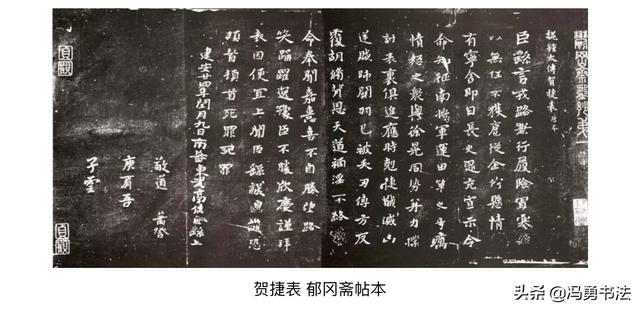 魏鍾太傅賀捷表
臣繇言戎路兼行履險冒寒
以無任不獲扈從企佇懸情
有寧舍即日長史逮充宣示令
命知征南將軍運田單之奇厲
憤怒之衆與徐晃同勢并力撲
討表裏俱進應時剋捷馘滅凶
逆賊帥關羽已被矢刃傅方反
覆胡脩背恩天道禍淫不終
命奉聞嘉憙喜不自勝望路
笑踊躍逸豫臣不勝欣慶謹拜
表因便宜上聞臣繇誠惶誠恐
頓首頓首死罪死罪
建安廿四年閏月九日南蕃東武亭侯臣繇上
貞觀
貞觀
贺捷表 郁冈斋帖本
头条 @冯勇书法